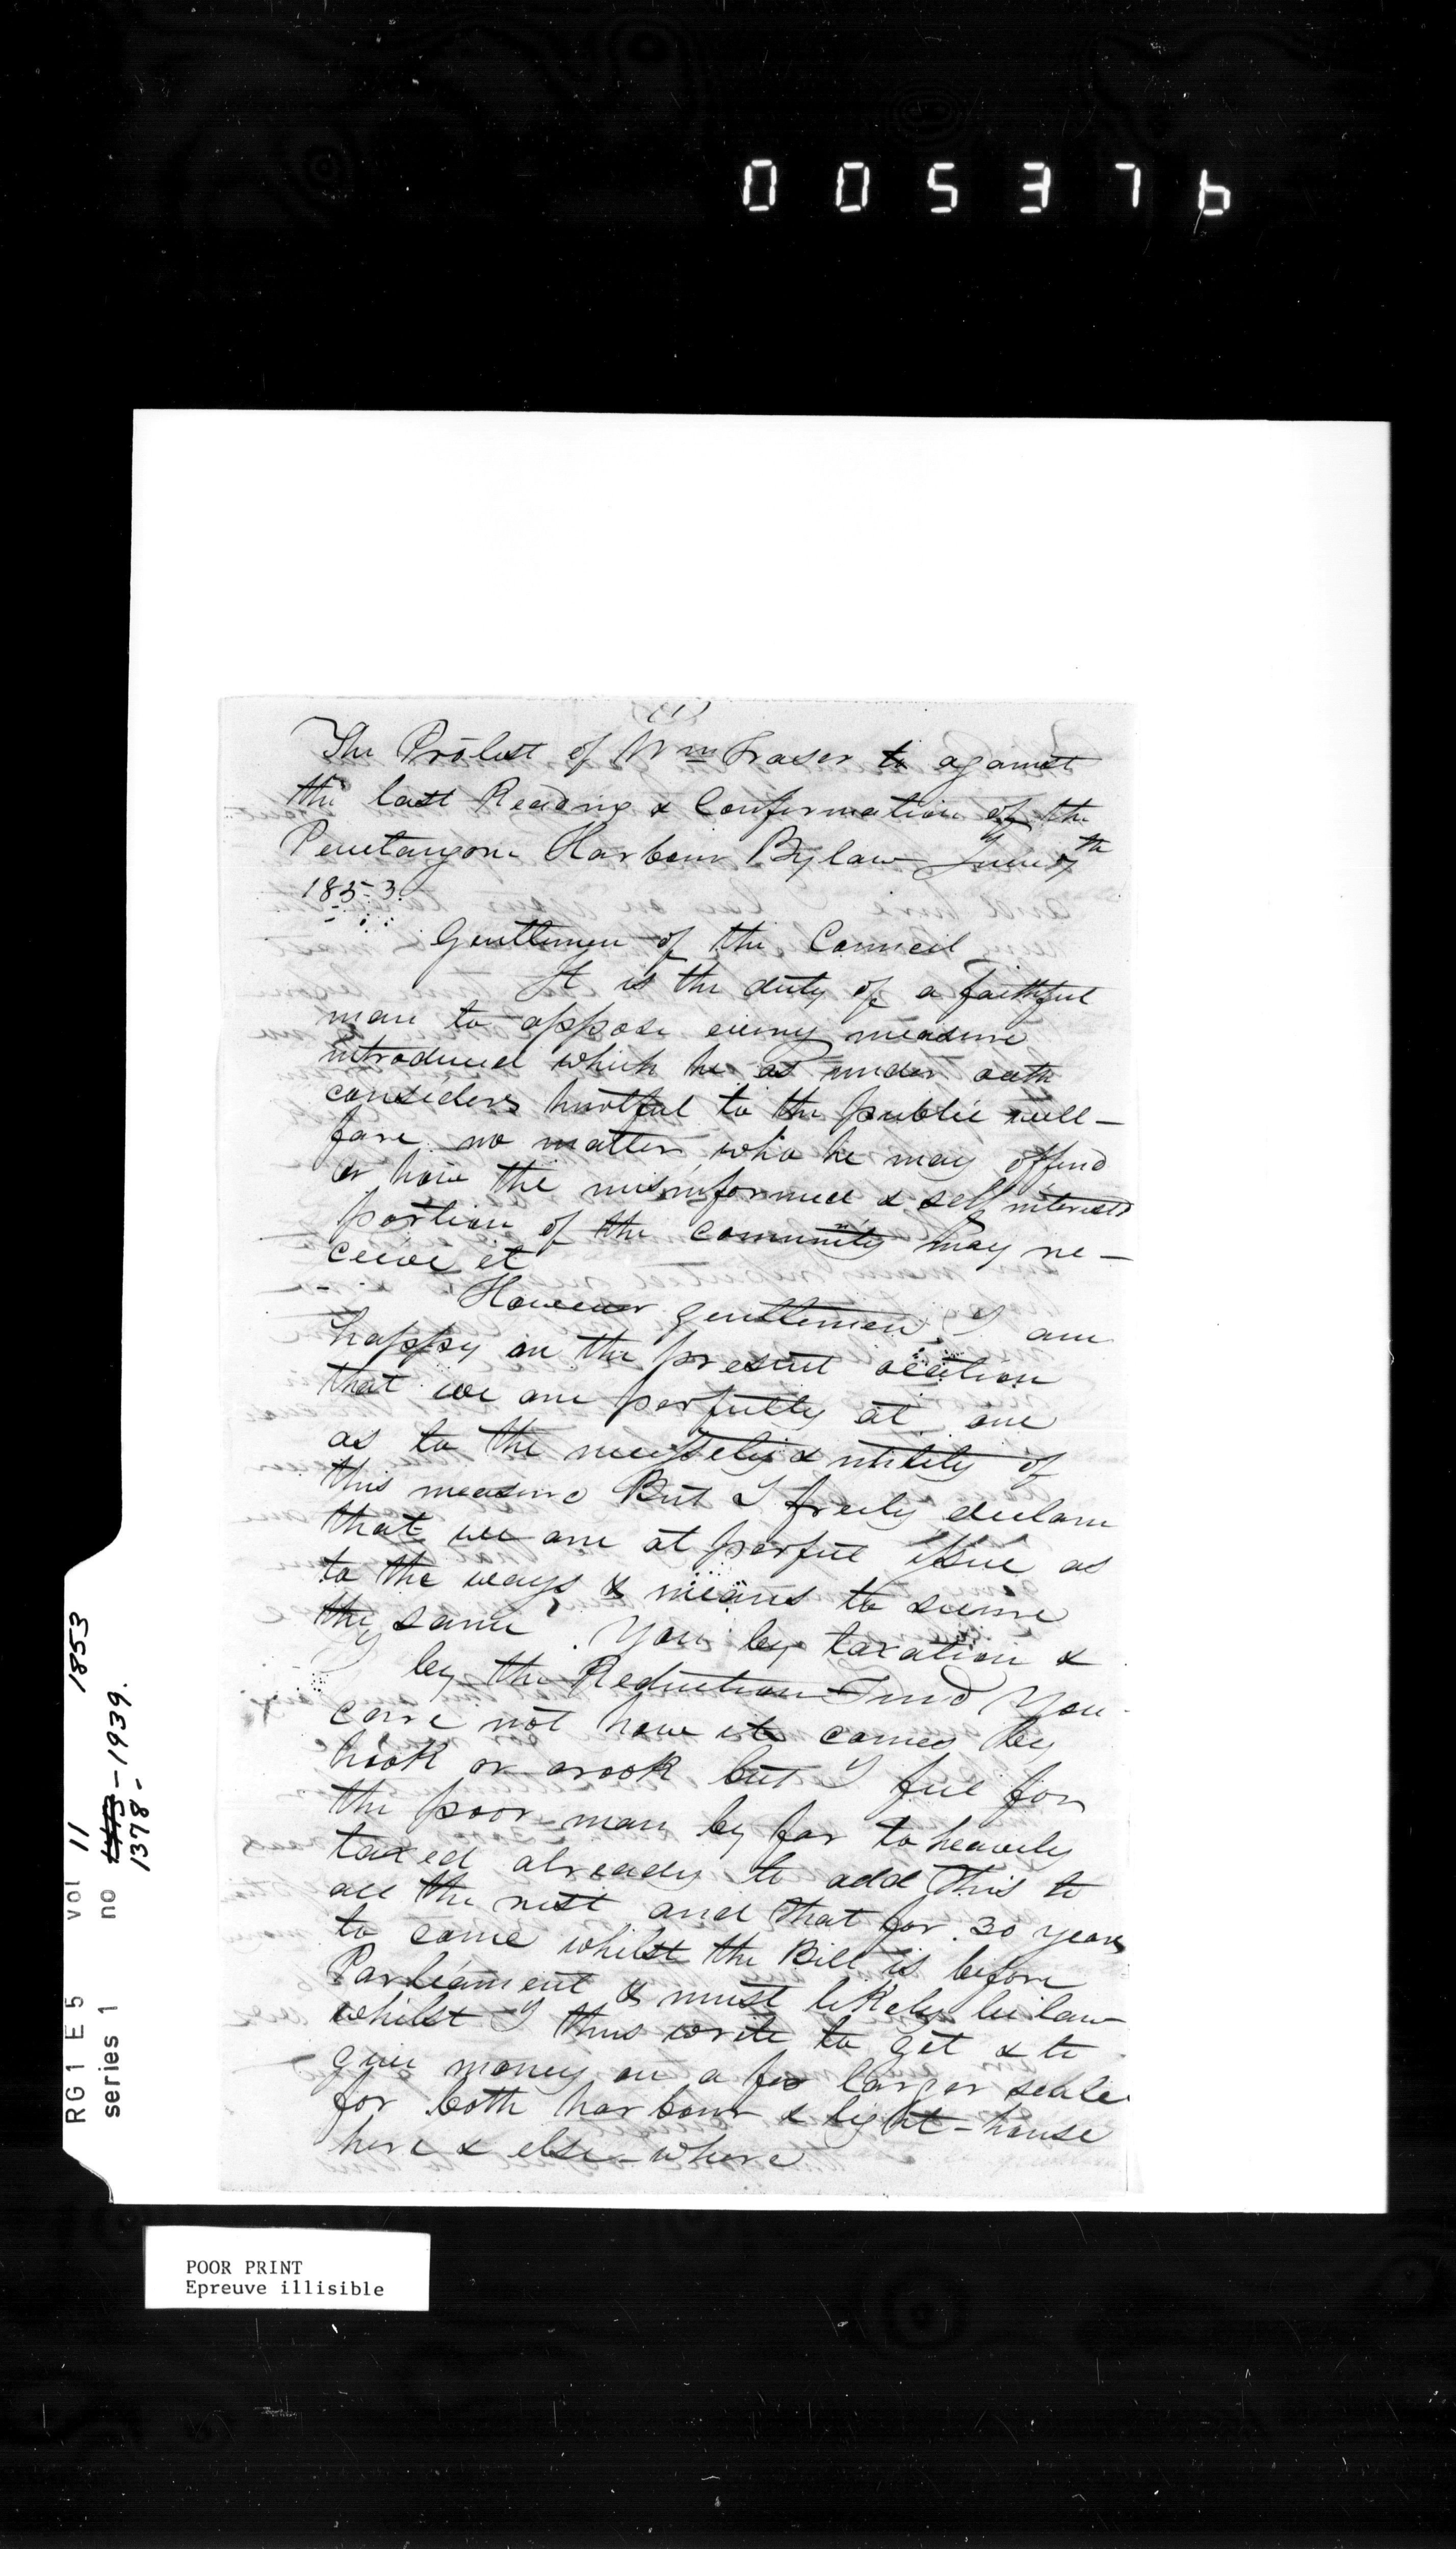 005376
(1)
The Protest of Wm Fraser to against
the last Reading & Confirmation of the
Penetangore Harbour Bylaw June 7th
1853
Gentlemen of the Council
It is the duty of a faithful
man to oppose every measure
introduced which he as under oath
considers hurtful to the public well-
fare no matter who he may offend
or how the misinformed & self interested
portion of the community may re-
ceive it
However gentlemen I am
happy on the present ocation
that we are perfectly at one
as to the necessety & utility of
this measure But I freely declare
that we are at perfect issue as
to the ways & means to secure
the same. You by taxation &
I by the Reduction Fund You
care not how it comes by
hook or crook but I feel for
the poor man by far to heavely
taxed already to add this to
all the rest and that for 30 years
to come whilst the Bill is before
Parliament & most likely be law
whilst I thus write to get & to
give money on a far larger scale
for both harbour & light-house
here & else-where
RG 1 E 5 vol 11 1853
series 1 no 1378-1939.
POOR PRINT
Epreuve illisible